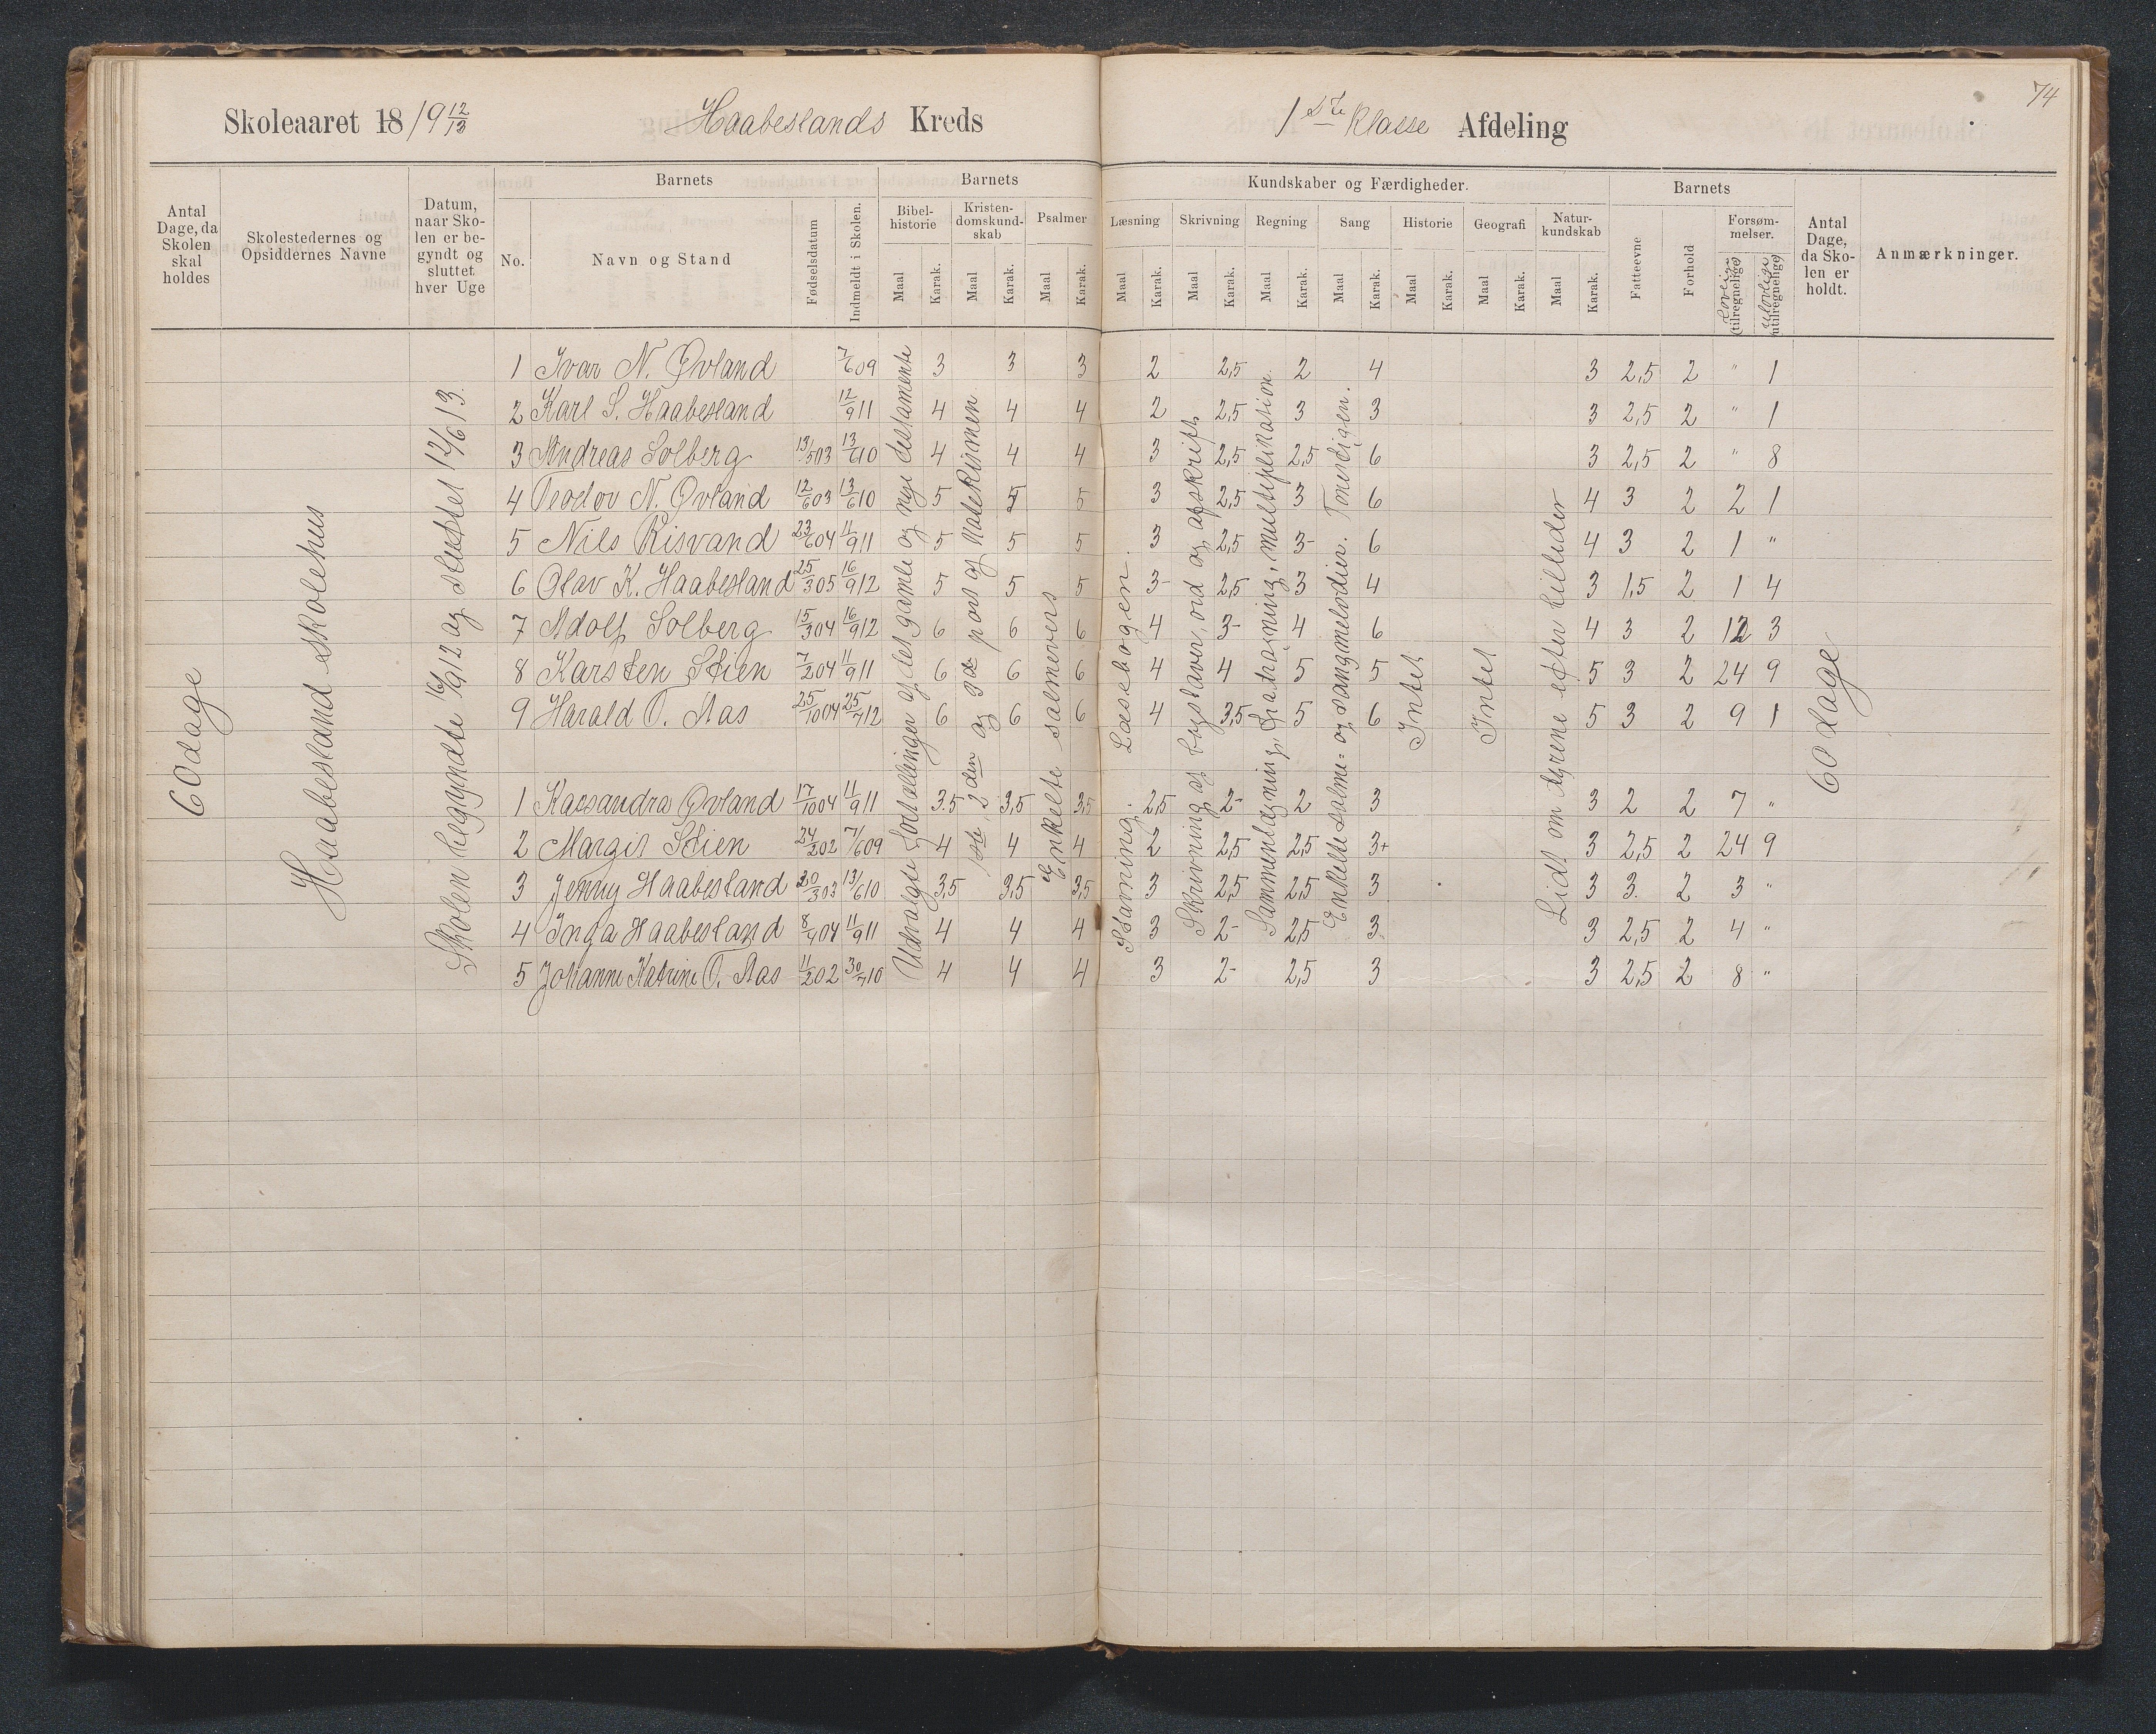 74
Skoleaaret 18/19 12/13 Haabeslands Kreds 1ste Klasse Afdeling
Antal Dage, da Skolen skal holdes
Skolestedernes og Opsiddernes Navne
Datum, naar Skolen er begyndt og sluttet hver Uge
Barnets
No.
Navn og Stand
Fødselsdatum
Indmeldt i Skolen.
Barnets Kundskaber og Færdigheder.
Bibelhistorie Maal Karak.
Kristendomskundskab Maal Karak.
Psalmer Maal Karak.
Læsning Maal Karak.
Skrivning Maal Karak.
Regning Maal Karak.
Sang Maal Karak.
Historie Maal Karak.
Geografi Maal Karak.
Naturkundskab Maal Karak.
Barnets
Fatteevne
Forhold
Forsømmelser.
Lovlige (tilregnelige)
Ulovlige (utilregnelige)
Antal Dage, da Skolen er holdt.
Anmærkninger.
60 dage
Haabesland skolehus
Skolen begyndte 16/9 12 og sluttet 14/6 13.
Udvalgte fortællinger af det gamle og nye testamente
1ste, 2den og 3de part af Katekismen
Enkelte salmevers
Stavning. Læsebogen.
Skrivning af bogstaver, ord og afskrift.
Sammenlægning, fradragning, multiplikation.
Enkelte salme- og sangmelodier. Tonestigen.
Intet
Intet
Lidt om dyrene efter billeder
60 dage
1 Ivar N. Øvland 7/6 09 3 3 3 2 2,5 2 4 3 2,5 2 " 1
2 Karl S. Haabesland 12/9 11 4 4 4 2 2,5 3 3 3 2,5 2 " 1
3 Andreas Solberg 13/5 03 13/6 10 4 4 4 3 2,5 2,5 6 3 2,5 2 " 8
4 Teodor N. Øvland 12/6 03 13/6 10 5 5 5 3 2,5 3 6 4 3 2 2 1
5 Nils Risvand 23/6 04 11/9 11 5 5 5 3 2,5 3- 6 4 3 2 1 "
6 Olav K. Haabesland 25/3 05 16/9 12 5 5 5 3- 2,5 3 4 3 1,5 2 1 4
7 Adolf Solberg 15/3 04 16/9 12 6 6 6 4 3- 4 6 4 3 2 12 3
8 Karsten Stien 7/2 04 11/9 11 6 6 6 4 4 5 5 5 3 2 24 9
9 Harald O. Aas 25/10 04 25/7 12 6 6 6 4 3,5 5 6 5 3 2 9 1
1 Kassandra Øvland 17/10 04 11/9 11 3,5 3,5 3,5 2,5 2- 2 3 3 2 2 7 "
2 Margit Stien 24/2 02 7/6 09 4 4 4 2 2,5 2,5 3+ 3 2,5 2 24 9
3 Jenny Haabesland 20/3 03 13/6 10 3,5 3,5 3,5 3 2,5 2,5 3 3 3. 2 3 "
4 Inga Haabesland 8/9 04 11/9 11 4 4 4 3 2- 2,5 3 3 2,5 2 4 "
5 Johanne Katrine O. Aas 11/2 02 30/7 10 4 4 4 3 2- 2,5 3 3 2,5 2 8 "